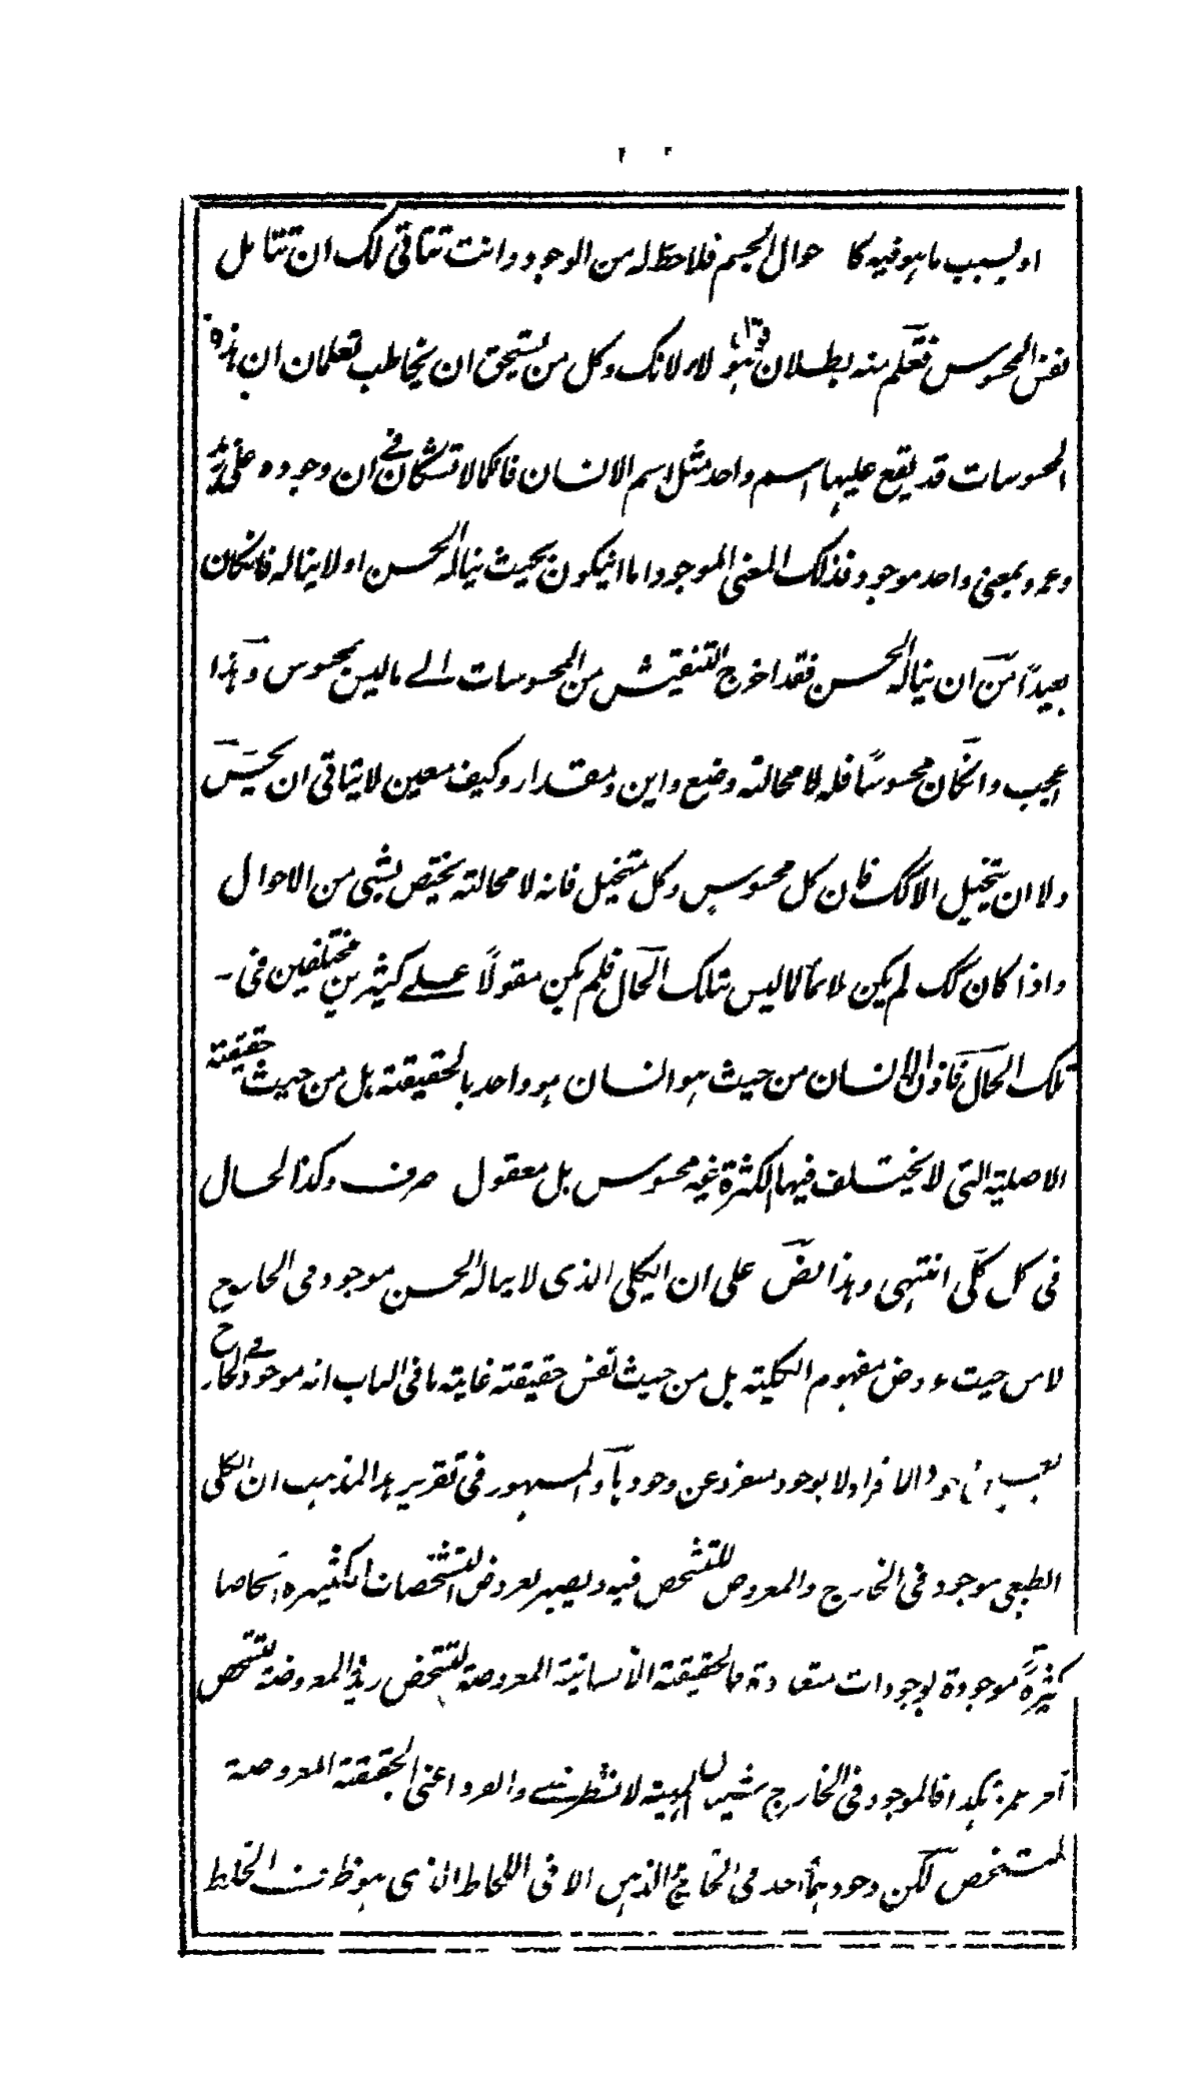 او بسبب ما هو فیه کا حوال الجسم فلا حظ له من الوجود وانت تتاتی لک ان تتامل
نفس المحسوس فتعلم منه بطلان قول هؤلاء لانک وکل من یستحق ان یخاطب تعلمان ان هذه
المحسوسات قد یقع علیها اسم واحد مثل اسم الانسان فانکما لا تشکان فی ان وجوده علی زید
وعمرو بمعنی واحد موجود فذلک المعنی الموجود اما انیکون بحیث یناله الحس او لا یناله فانکان
بعیداً من ان یناله الحس فقد اخرج التفتیش من المحسوسات الے ما لیس بمحسوس وهذا
اعجب وانکان محسوساً فله لا محالته وضع واین ومقدار وکیف معین لا یتاتی ان یحس
ولا ان یتخیل الا کک فان کل محسوس وکل متخیل فانه لا محالته یختص بشئی من الاحوال
واذا کان کک لم یکن ملائماً لما لیس بتلک الحال فلم یکن مقولاً علے کثیرین مختلفین فی -
تلک الحال فاذن الانسان من حیث هو انسان هو واحد بالحقیقته بل من حیث حقیقته
الاصلیته التی لا یختلف فیها الکثرة غیر محسوس بل معقول صرف وکذا الحال
فی کل کلی انتهی وهذا نص علی ان الکلی الذی لا یناله الحس موجود فی الخارج
لا من حیث عروض مفهوم الکلیته بل من حیث نفس حقیقته غایته ما فی الباب انه موجود فی الخارج
بعین وجود الافراد لا بوجود منفرد عن وجودها والمشهور فی تقریر هذا المذهب ان الکلی
الطبعی موجود فی الخارج والمعروض للتشخص فیه ویصیر لعروض التشخصات الکثیرة اشخاصا
کثیرةً موجودة بوجودات متعددة فالحقیقته الانسانیته المعروضة لتشخص زید المعروضة لتشخص
آخر عمرو هکذا فالموجود فی الخارج شیئان المهیته لا بشرط شے والفرد اعنی الحقیقته المعروضة
للتشخص لکن وجودهما واحد فی الخارج الذهن الا فی اللحاظ الذی هو ظرف الخلط